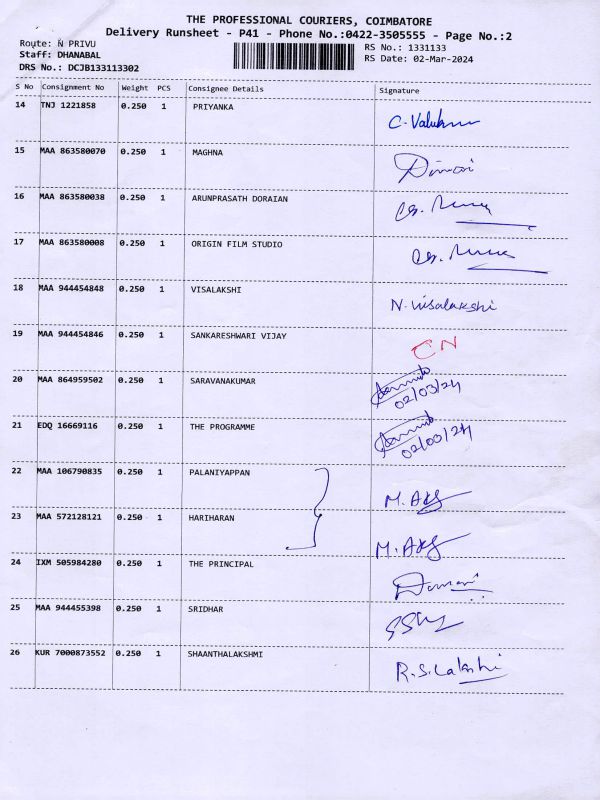 THE PROFESSIONAL COURIERS, COIMBATORE
Delivery Runsheet - P41 - Phone No.:0422-3505555 - Page No.:2
Route: N PRIVU
RS No.: 1331133
Staff: DHANABAL
RS Date: 02-Mar-2024
DRS No.: DCJB133113302
S No Consignment No Weight PCS Consignee Details Signature
14 TNJ 1221858 0.250 1 PRIYANKA
15 MAA 863580070 0.250 1 MAGHNA
16 MAA 863580038 0.250 1 ARUNPRASATH DORAIAN
17 MAA 863580008 0.250 1 ORIGIN FILM STUDIO
18 MAA 944454848 0.250 1 VISALAKSHI N. Visalakshi
19 MAA 944454846 0.250 1 SANKARESHWARI VIJAY CN
20 MAA 864959502 0.250 1 SARAVANAKUMAR
02/03/24
21 EDQ 16669116 0.250 1 THE PROGRAMME
02/03/24
22 MAA 106790835 0.250 1 PALANIYAPPAN
23 MAA 572128121 0.250 1 HARIHARAN
24 IXM 505984280 0.250 1 THE PRINCIPAL
25 MAA 944455398 0.250 1 SRIDHAR
26 KUR 7000873552 0.250 1 SHAANTHALAKSHMI R.S.Lakshi